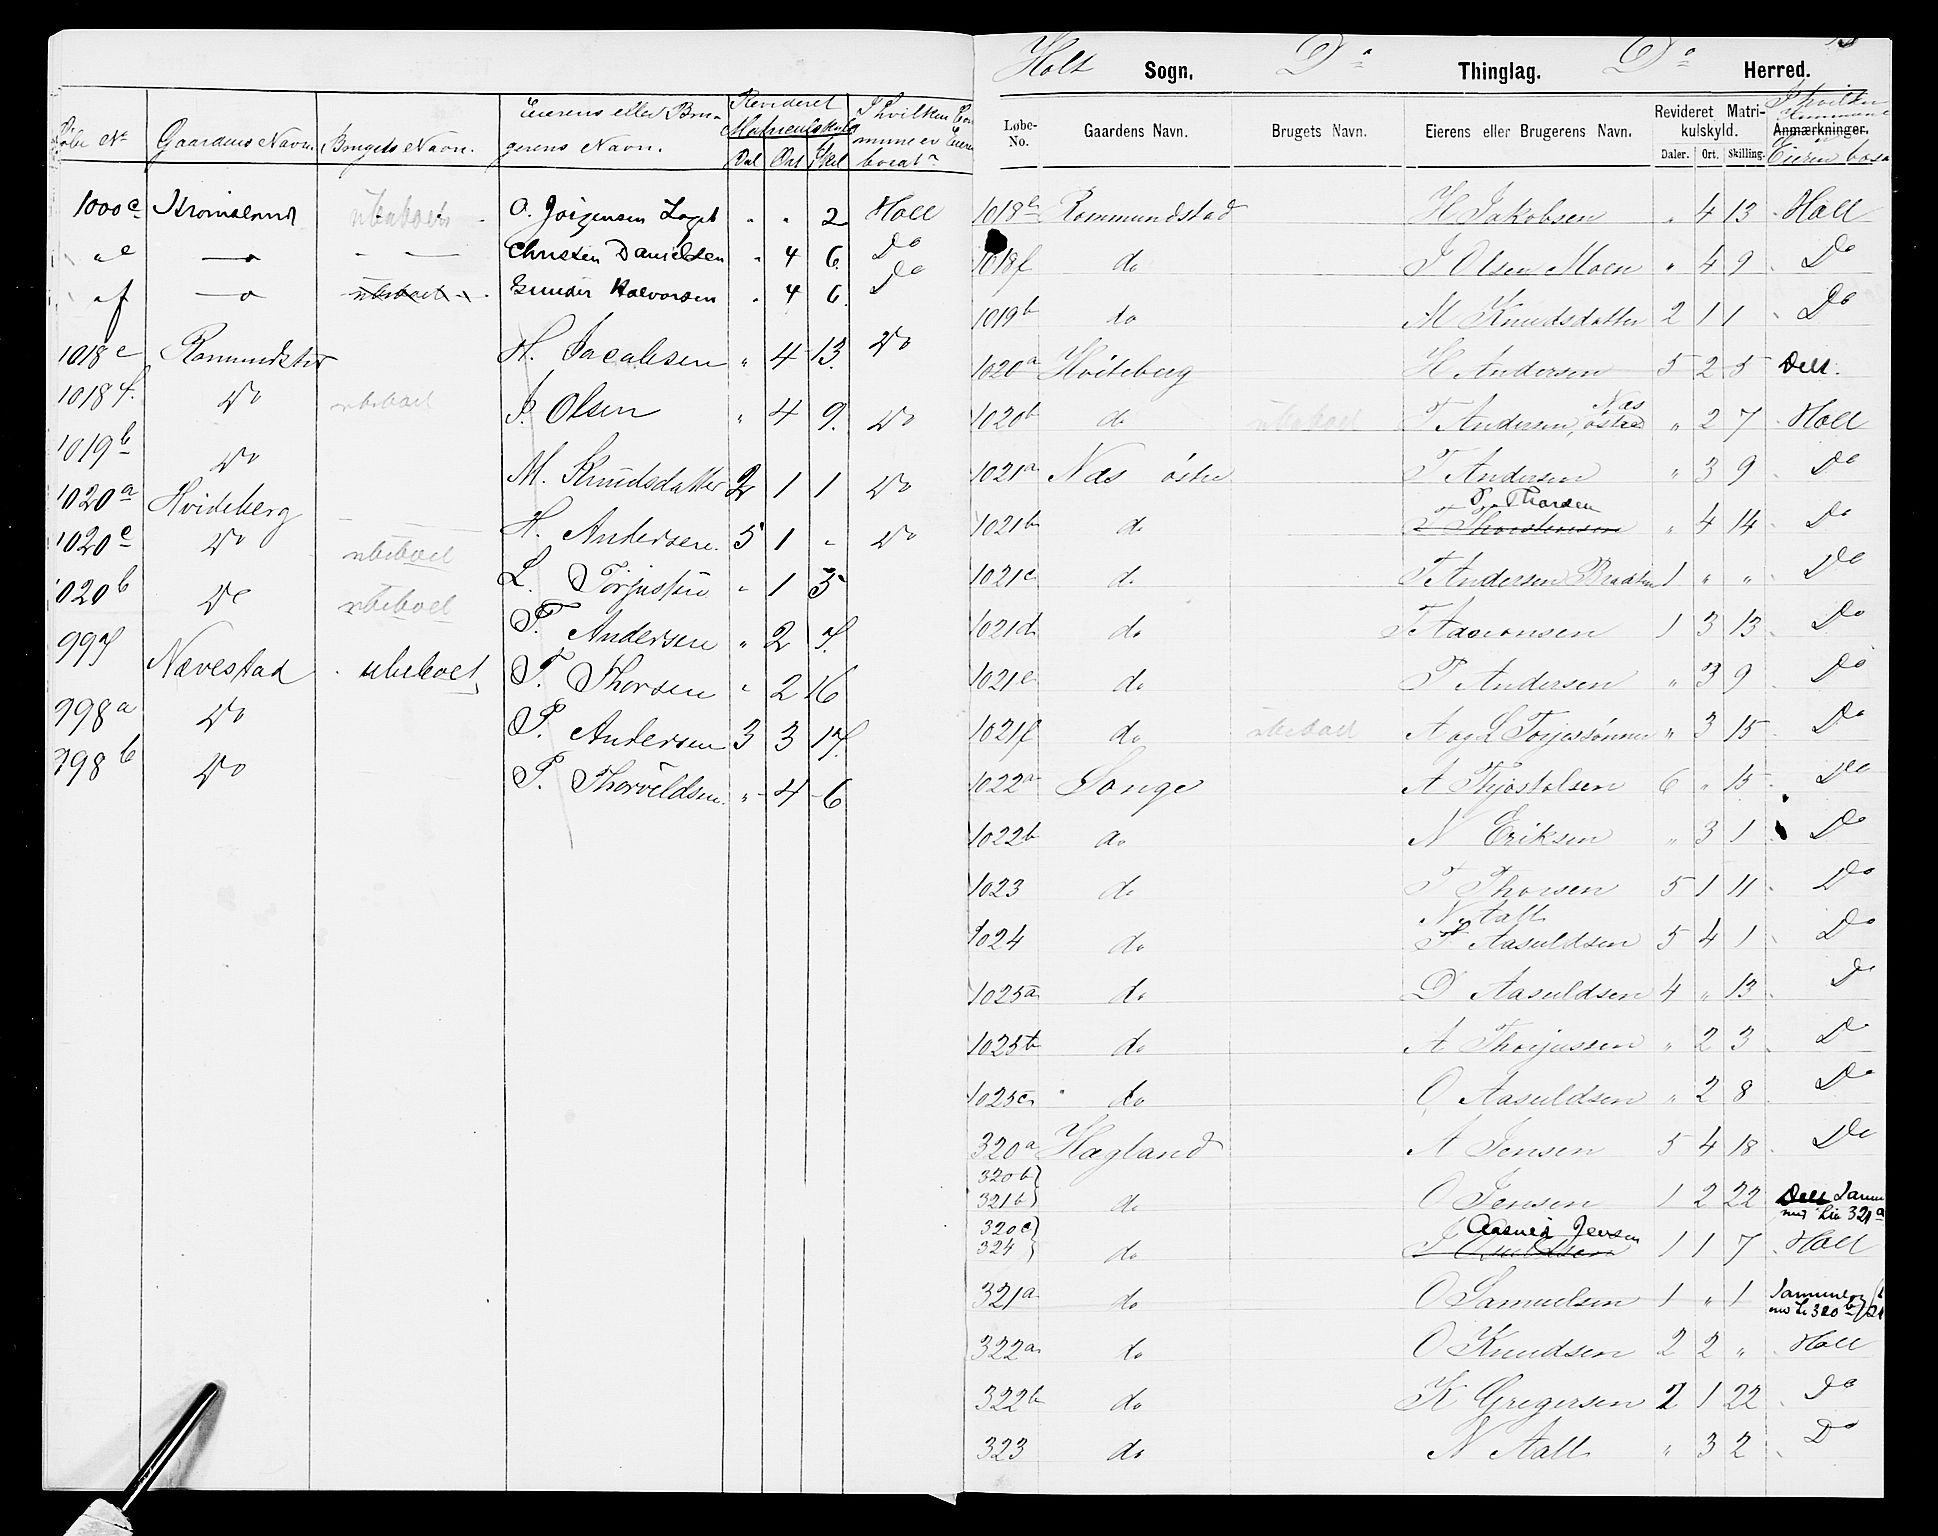 Løbe Nr Gaardens Navn. Brugets Navn. Eierens eller Brugerens Navn. Revideret Matriculskyld Dal Ort Skil I hvilken Commune er Eieren boeat?
1000c ubeboet O. Jørgensen 2 Holt
" e — Christen Danielsen " 4 6. Do
" f — ubeboet Gunder Halvorsen " 4 6. Do
1018e H. Jacobsen " 4 13. Do
1018f. Do ubeboet J. Olsen " 4 9. Do
1019b Do M. Knudsdatter 2 1 1 Do
1020a Hvideberg H. Andersen. 5 1 " Do
1020c Do ubeboet L. " 1 3
1020b Do ubeboet T. Andersen " 2 7.
997 Nævestad ubeboet T. Thorsen " 2 16
998a Do P. Andersen 3 3 17.
998b Do P. " 4 6
Holt Sogn. Do Thinglag. Do Herred.
Løbe-No. Gaardens Navn. Brugets Navn. Eierens eller Brugerens Navn. Revideret Matrikulskyld. Daler. Ort. Skilling. Anmærkninger. I hvilken Commune er Eieren bosat
1018e Rommundstad H Jakobsen " 4 13 Holt
1018f do J Olsen Moen " 4 9 Do
1019b do M Knudsdatter 2 1 1 Do
1020a Hviteberg H Andersen 5 2 5
1020b do ubeboet T Andersen, Næs østre " 2 7 Holt
1021a Næs østre T Andersen " 3 9 Do
P. Thorsen
1021b do T Thorstensen " 4 14 Do
1021c do T Andersen 1 " " Do
1021d do T Aaronsen 1 3 13 Do
1021e do P Andersen " 3 9 Do
1021f do ubeboet A og L Torjussønner " 3 15 Do
1022a Songe A Thjostolsen 6 " 15 Do
1022b do N Eriksen " 3 1 Do
1023 do T Thorsen 5 1 11 Do
N. Aall
1024 do T Aasuldsen 5 4 1 Do
1025a do D Aasuldsen 4 " 13 Do
1025b do A Thorjussen " 2 3 Do
1025c do O Aasuldsen " 2 8 Do
320a Hagland A Jensen 5 4 18 Do
320b}
321b} do O Jensen 1 2 22
med Lno 321a
320c} Jensen
324} do 1 1 7 Holt
321a do O Samuelsen 1 " 1
322a do O Knudsen 2 2 " Holt
322b do K Gregersen 2 1 22 Do
323 do N Aall " 3 2 Do